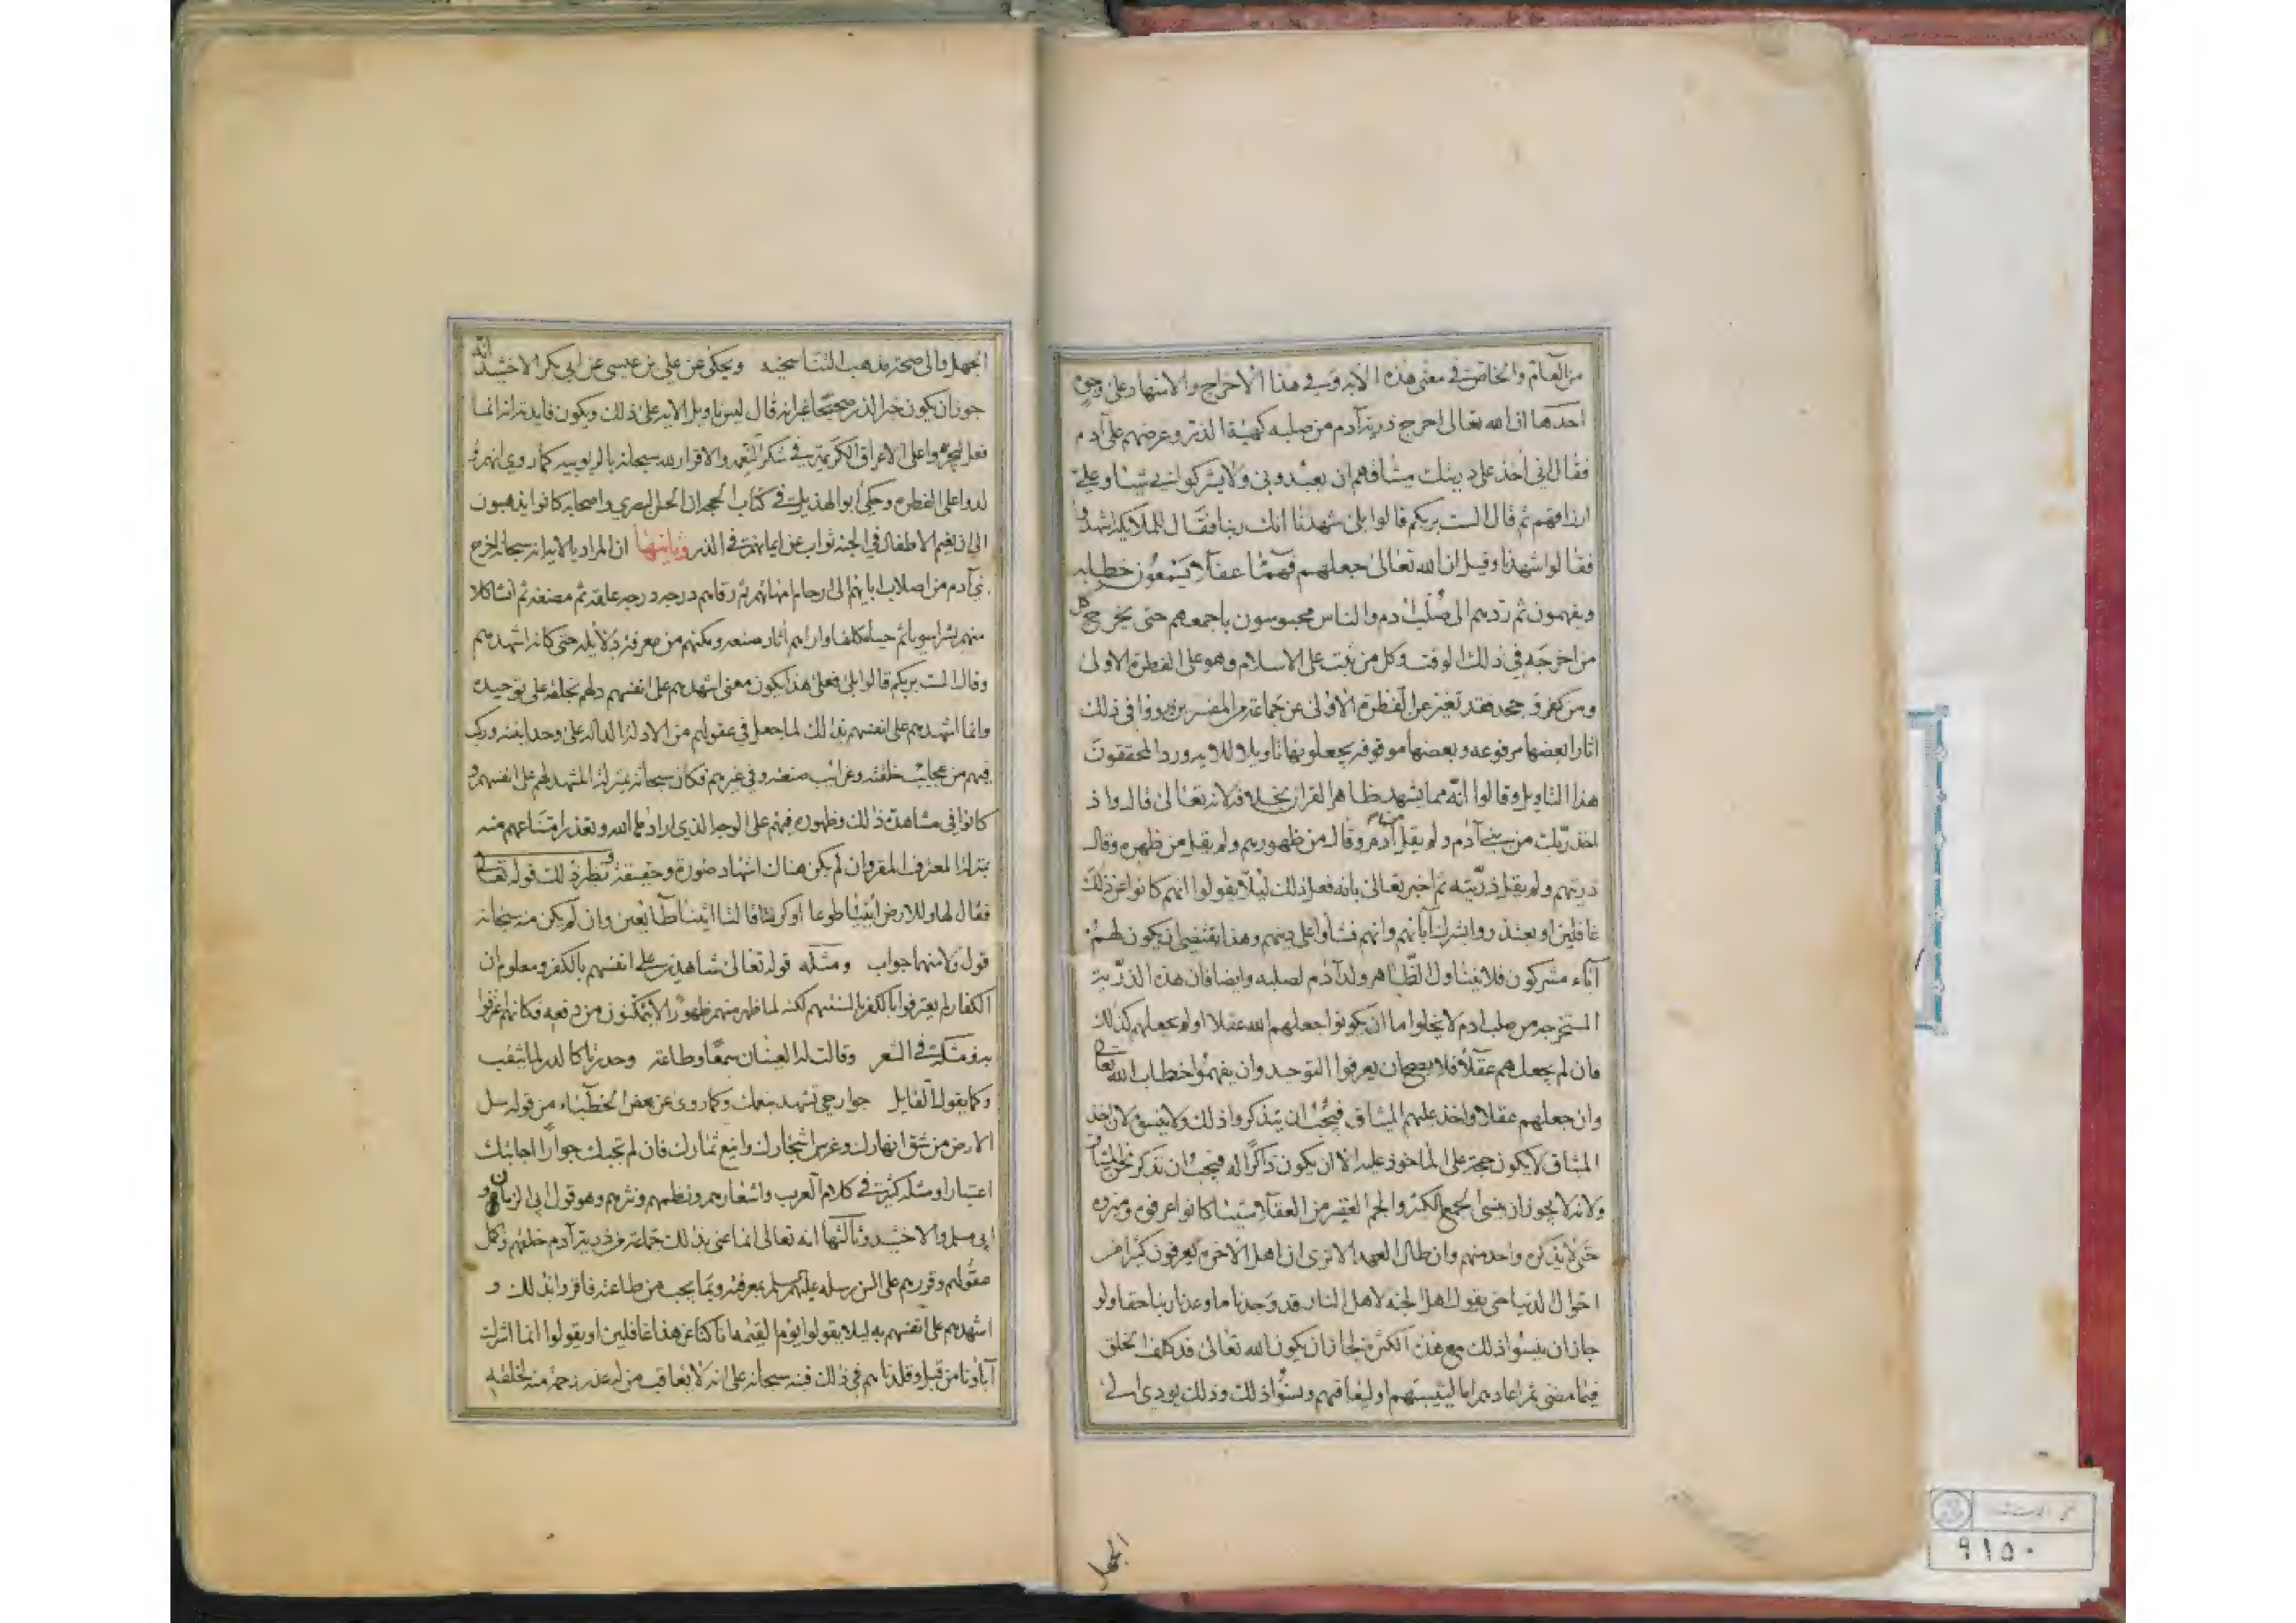 من العام والخاص في معنى هذه الاية وفي هذا الاخراج والاشهاد على وجوه
احدها ان الله تعالى اخرج ذرية آدم من صلبه كهيئة الذر وعرضهم على آدم
فقال اني آخذ على ذريتك ميثاقهم ان يعبدوني ولا يشركوا بي شيئا وعلي
ارزاقهم ثم قال الست بربكم قالوا بلى شهدنا انك ربنا فقال للملائكة اشهدوا
فقالوا شهدنا وقيل ان الله تعالى جعلهم فهما عقلا يسمعون خطابه
ويفهمون ثم ردهم الى صلب ادم والناس محبوسون باجمعهم حتى يخرج كل
من اخرجه في ذلك الوقت وكل من ثبت على الاسلام وهو على الفطرة الاولى
ومن كفر وجحد فقد تغير عن الفطرة الاولى عن جماعة من المفسرين ورووا في ذلك
اثارا بعضها مرفوعه وبعضها موقوفه يجعلونها تاويلا للاية ورد المحققون
هذا التاويل وقالوا انه مما يشهد ظاهر القران بخلافه لانه تعالى قال واذ
اخذ ربك من بني آدم ولم يقل من آدم وقال من ظهورهم ولم يقل من ظهره وقال
ذريتهم ولم يقل ذريته ثم اخبر تعالى بانه فعل ذلك لئلا يقولوا انهم كانوا عن ذلك
غافلين او يعتذروا بشرك آبائهم وانهم نشأوا على دينهم وهذا يقتضي ان يكون لهم
آباء مشركون فلا يتناول الظاهر ولد آدم لصلبه وايضا فان هذه الذرية
المستخرجه من صلب ادم لا يخلوا ما ان يكونوا جعلهم الله عقلا او لم يجعلهم كذلك
فان لم يجعلهم عقلا فلا يصح ان يعرفوا التوحيد وان يفهموا خطاب الله تعالى
وان جعلهم عقلا واخذ عليهم الميثاق فيجب ان يتذكروا ذلك ولا ينسوه لان اخذ
الميثاق لا يكون حجة على الماخوذ عليه الا ان يكون ذاكرا له فيجب ان نذكر نحن الميثاق
ولانه لا يجوز ان ينسى الجمع الكثير والجم الغفير من العقلا شيئا كانوا عرفوه وميزوه
حتى لا يذكره واحد منهم وان طال العهد الا ترى ان اهل الاخرة يعرفون كثيرا من
احوال الدنيا حتى يقول اهل الجنة لاهل النار قد وجدنا ما وعدنا ربنا حقا ولو
جاز ان ينسوا ذلك مع هذه الكثرة لجاز ان يكون الله تعالى قد كلف الخلق
فيما مضى ثم اعادهم اما ليثيبهم او ليعاقبهم ونسوا ذلك وذلك يودي الى
الجهل
الجهل والى صحة مذهب التناسخيه ويحكى عن علي بن عيسى عن ابي بكر الاخشيد انه
جوز ان يكون خبر الذر صحيحا غير انه قال ليس تاويل الاية على ذلك ويكون فايدته انه انما
فعل ليجروا على الاعراق الكريمة في شكر النعمة والاقرار لله سبحانه بالربوبيه كما روي انهم و
لدوا على الفطره وحكى ابو الهذيل في كتاب الحجة ان الحسن البصري واصحابه كانوا يذهبون
الى ان نعيم الاطفال في الجنة ثواب عن ايمانهم في الذر وثانيها ان المراد بالاية انه سبحانه اخرج
بني آدم من اصلاب ابائهم الى ارحام امهاتهم ثم رقاهم درجه درجه علقه ثم مضغه ثم انشا كلا
منهم بشرا سويا ثم حيا مكلفا واراهم اثار صنعه ومكنهم من معرفة دلائله حتى كانه اشهدهم
وقال الست بربكم قالوا بلى فعلى هذا يكون معنى اشهدهم على انفسهم دلهم بخلقه على توحيده
وانما اشهدهم على انفسهم بذلك لما جعل في عقولهم من الادلة الدالة على وحدانيته وركب
فيهم من عجايب خلقته وغرائب صنعته وفي غيرهم فكان سبحانه بمنزلة المشهد لهم على انفسهم و
كانوا في مشاهدة ذلك وظهوره فيهم على الوجه الذي اراده الله وتعذر امتناعهم منه
بمنزلة المعترف المقر وان لم يكن هناك اشهاد صورة وحقيقة ونظير ذلك قوله تعالى
فقال لها وللارض ائتيا طوعا او كرها قالتا اتينا طائعين وان لم يكن منه سبحانه
قول ولا منهما جواب ومثله قوله تعالى شاهدين على انفسهم بالكفر ومعلوم ان
الكفار لم يعترفوا بالكفر بالسنتهم لكنه لما ظهر منهم ظهورا لا يتمكنون من دفعه فكانهم اعترفوا
به ومثله في الشعر وقالت له العينان سمعا وطاعة وحدرتا كالدر لما يثقب
وكما يقول القايل جوارحي تشهد بنعمك وكما روي عن بعض الخطباء من قوله سل
الارض من شق انهارك وغرس اشجارك واينع ثمارك فان لم تجبك جوارا اجابتك
اعتبارا ومثله كثير في كلام العرب واشعارهم ونظمهم ونثرهم وهو قول ابي الرمان و
ابي مسلم والاخشيد وثالثها انه تعالى انما عنى بذلك جماعة من ذرية آدم خلقهم وكمل
عقولهم وقررهم على السن رسله عليهم السلم بمعرفته وبما يجب من طاعته فاقروا بذلك و
اشهدهم على انفسهم به ليلا يقولوا يوم القيمه انا كنا عن هذا غافلين او يقولوا انما اشرك
آباؤنا من قبل وقلدناهم في ذلك فنبه سبحانه على انه لا يعاقب من له عذر رحمة منه لخلقه
۹۱۵۰